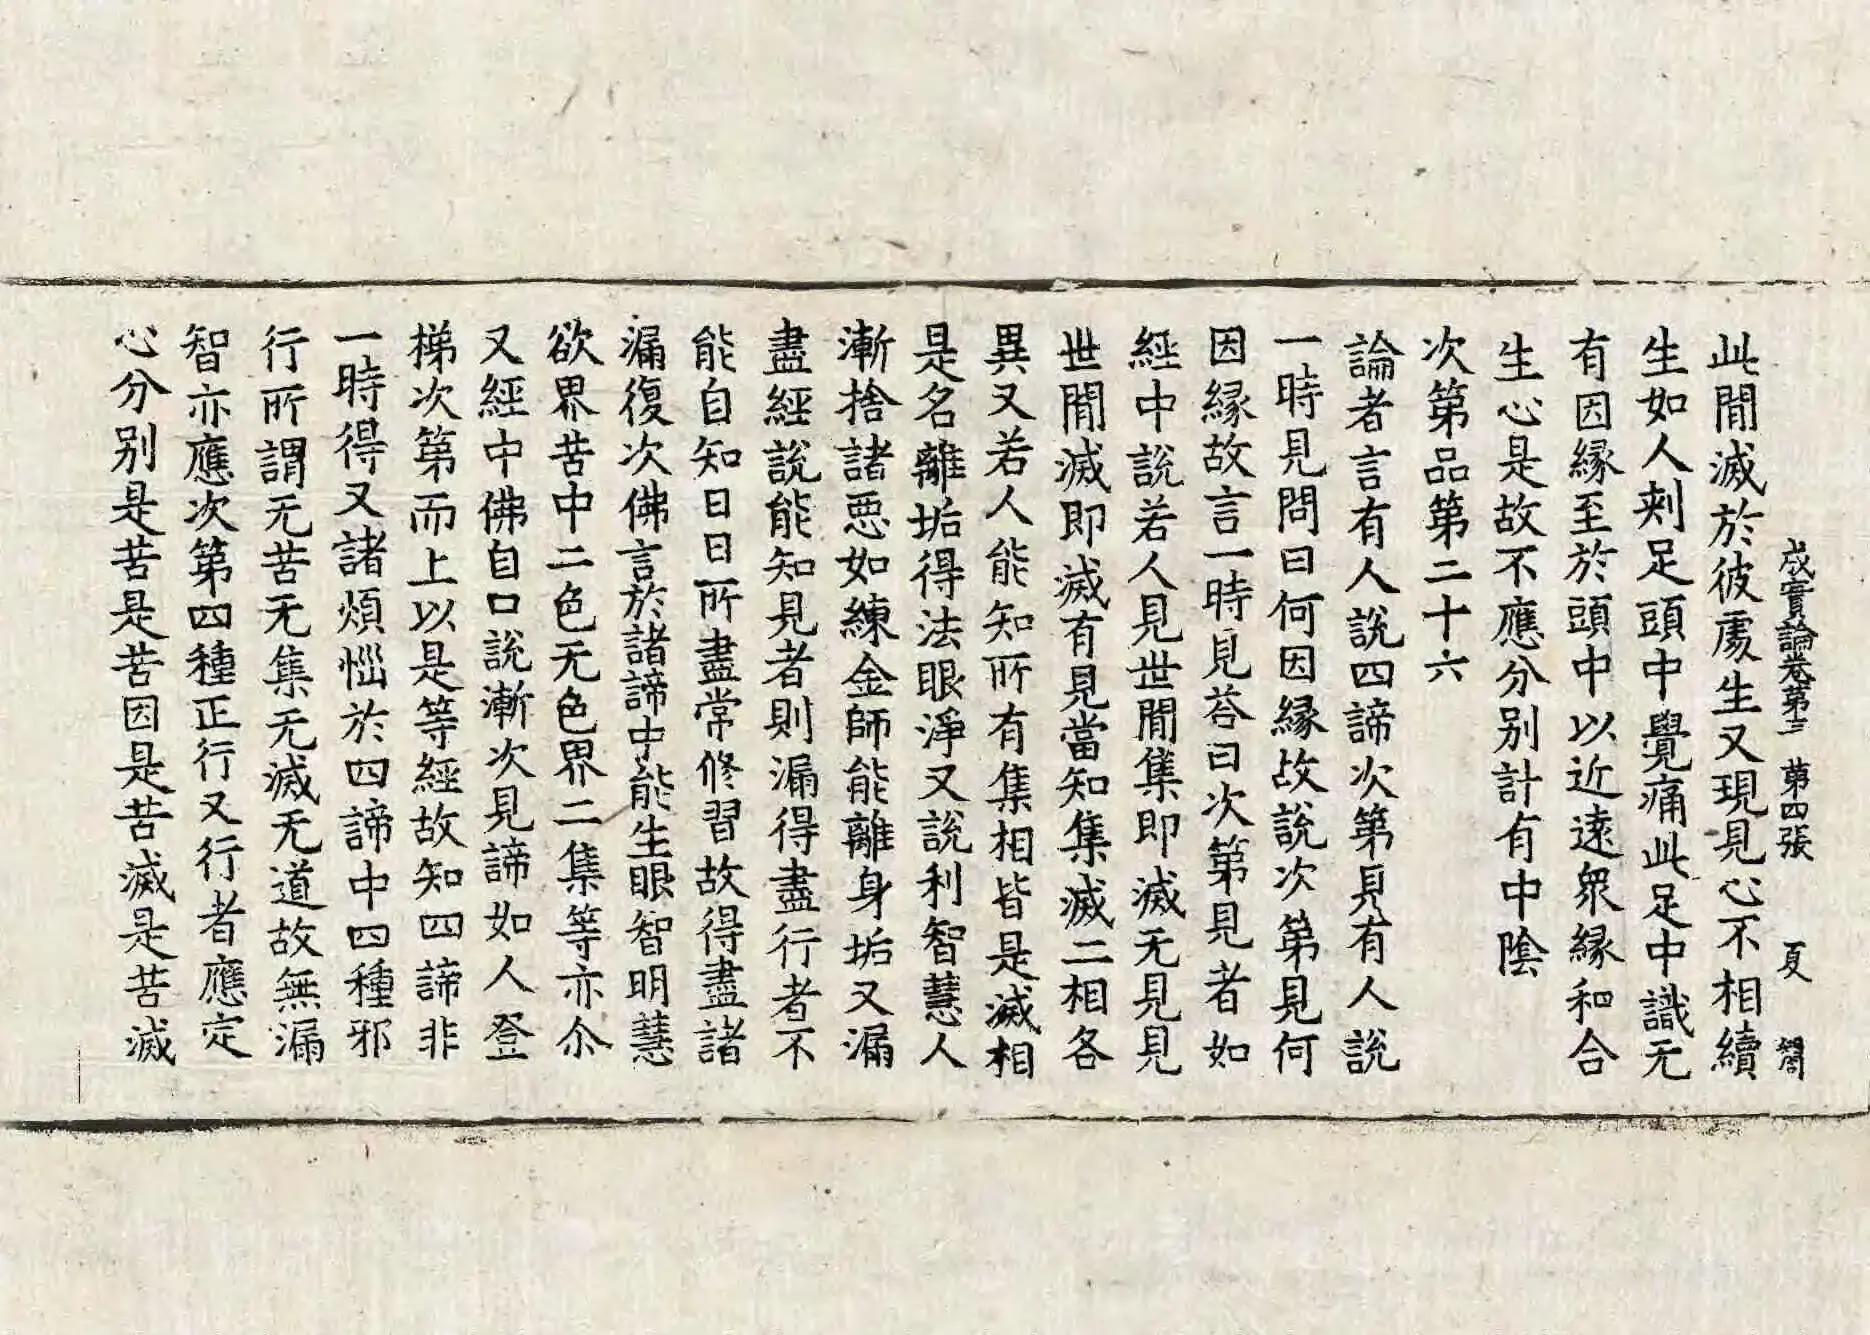 成實論卷第三 第四張 夏
此閒滅於彼處生又現見心不相續
生如人刾足頭中覺痛此足中識无
有因緣至於頭中以近遠衆緣和合
生心是故不應分別計有中陰
次第品第二十六
論者言有人說四諦次第見有人說
一時見問曰何因緣故說次第見何
因緣故言一時見荅曰次第見者如
經中說若人見世閒集即滅无見見
世閒滅即滅有見當知集滅二相各
異又若人能知所有集相皆是滅相
是名離垢得法眼淨又說利智慧人
漸捨諸惡如練金師能離身垢又漏
盡經說能知見者則漏得盡行者不
能自知日日所盡常修習故得盡諸
漏復次佛言於諸諦中能生眼智明慧
欲界苦中二色无色界二集等亦尒
又經中佛自口說漸次見諦如人登
梯次第而上以是等經故知四諦非
一時得又諸煩惱於四諦中四種邪
行所謂无苦无集无滅无道故無漏
智亦應次第四種正行又行者應定
心分別是苦是苦因是苦滅是苦滅